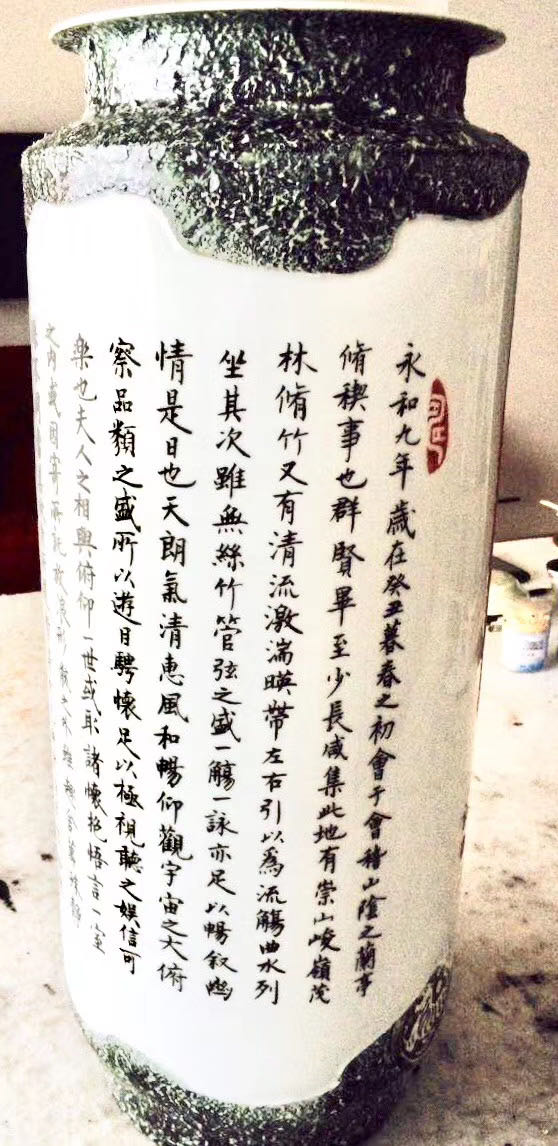 永和九年歲在癸丑暮春之初會于會稽山陰之蘭亭
脩稧事也群賢畢至少長咸集此地有崇山峻嶺茂
林脩竹又有清流激湍暎帶左右引以為流觴曲水列
坐其次雖無絲竹管弦之盛一觴一詠亦足以暢叙幽
情是日也天朗氣清惠風和暢仰觀宇宙之大俯
察品類之盛所以遊目騁懷足以極視聽之娛信可
樂也夫人之相與俯仰一世或取諸懷抱悟言一室
之內或因寄所託放浪形骸之外雖趣舍萬殊靜